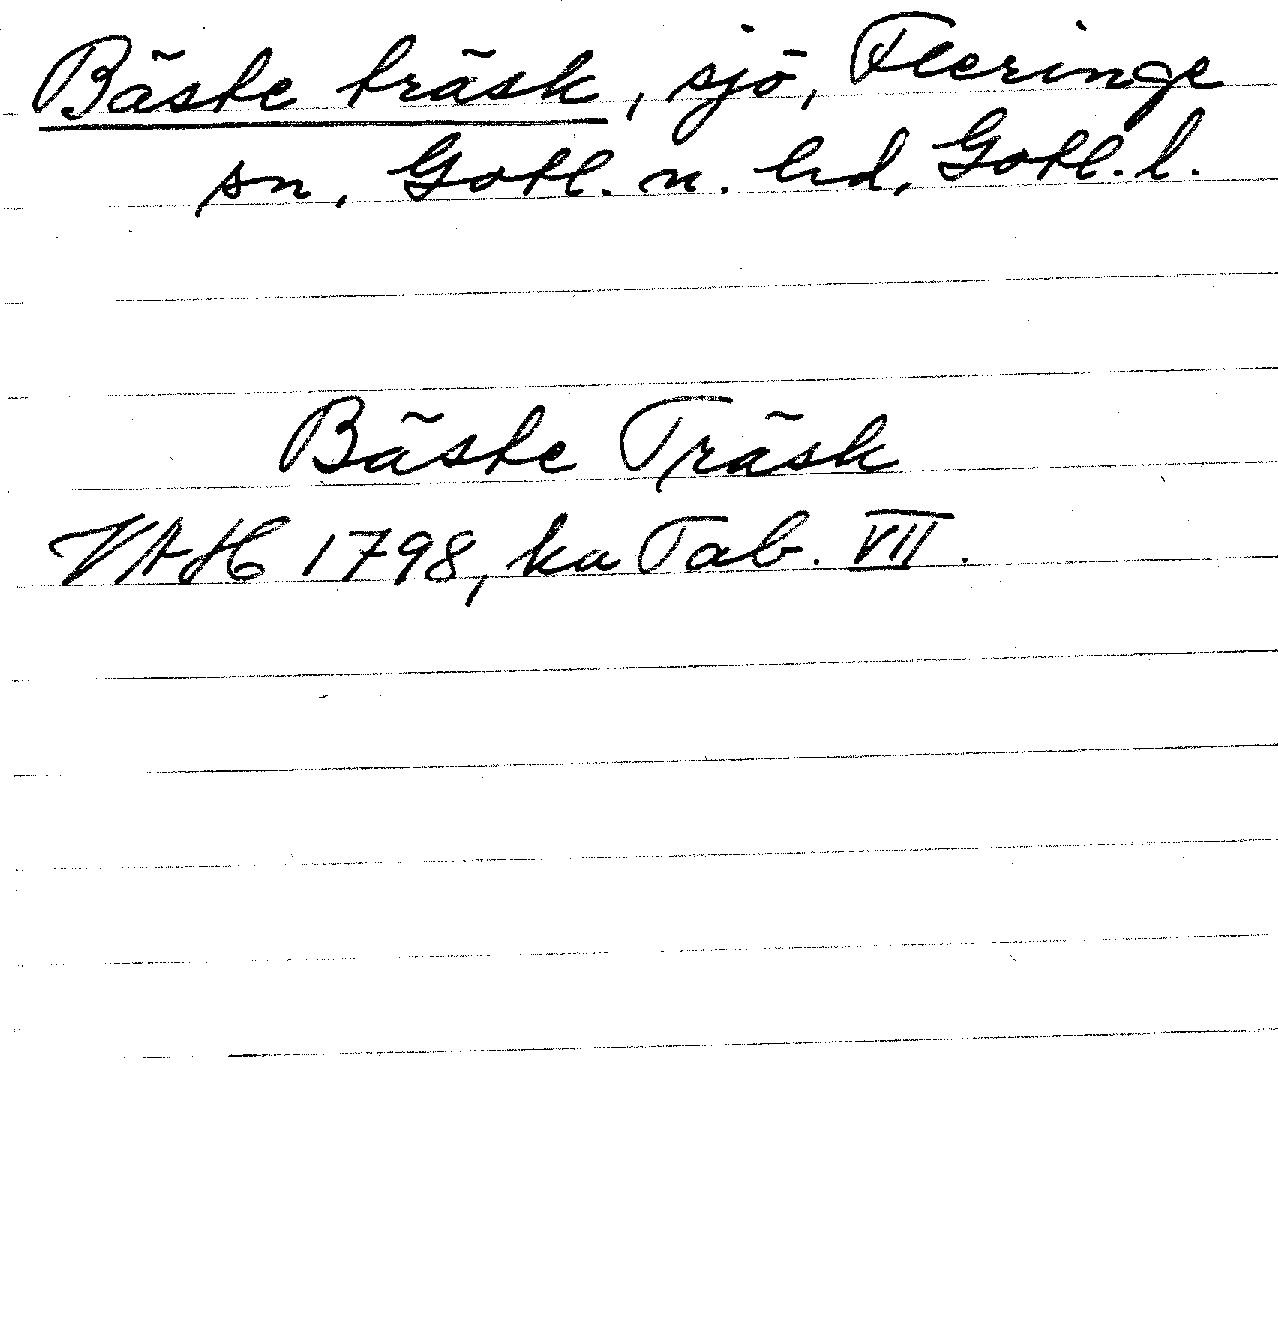 Bäste träsk, sjö, Fleringe
sn, Gotl. n. hd, Gotl. l.
Bäste Träsk
VAH 1798, ka Tab. VII.